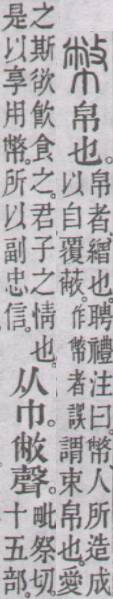 幣帛也。
帛者。繒也。聘禮注曰。幣人所造成
以自覆蔽。作幣者誤。謂束帛也。愛
之斯欲飲食之。君子之情也。
是以享用幣。所以副忠信。
从巾。敝聲。
毗祭切。
十五部。